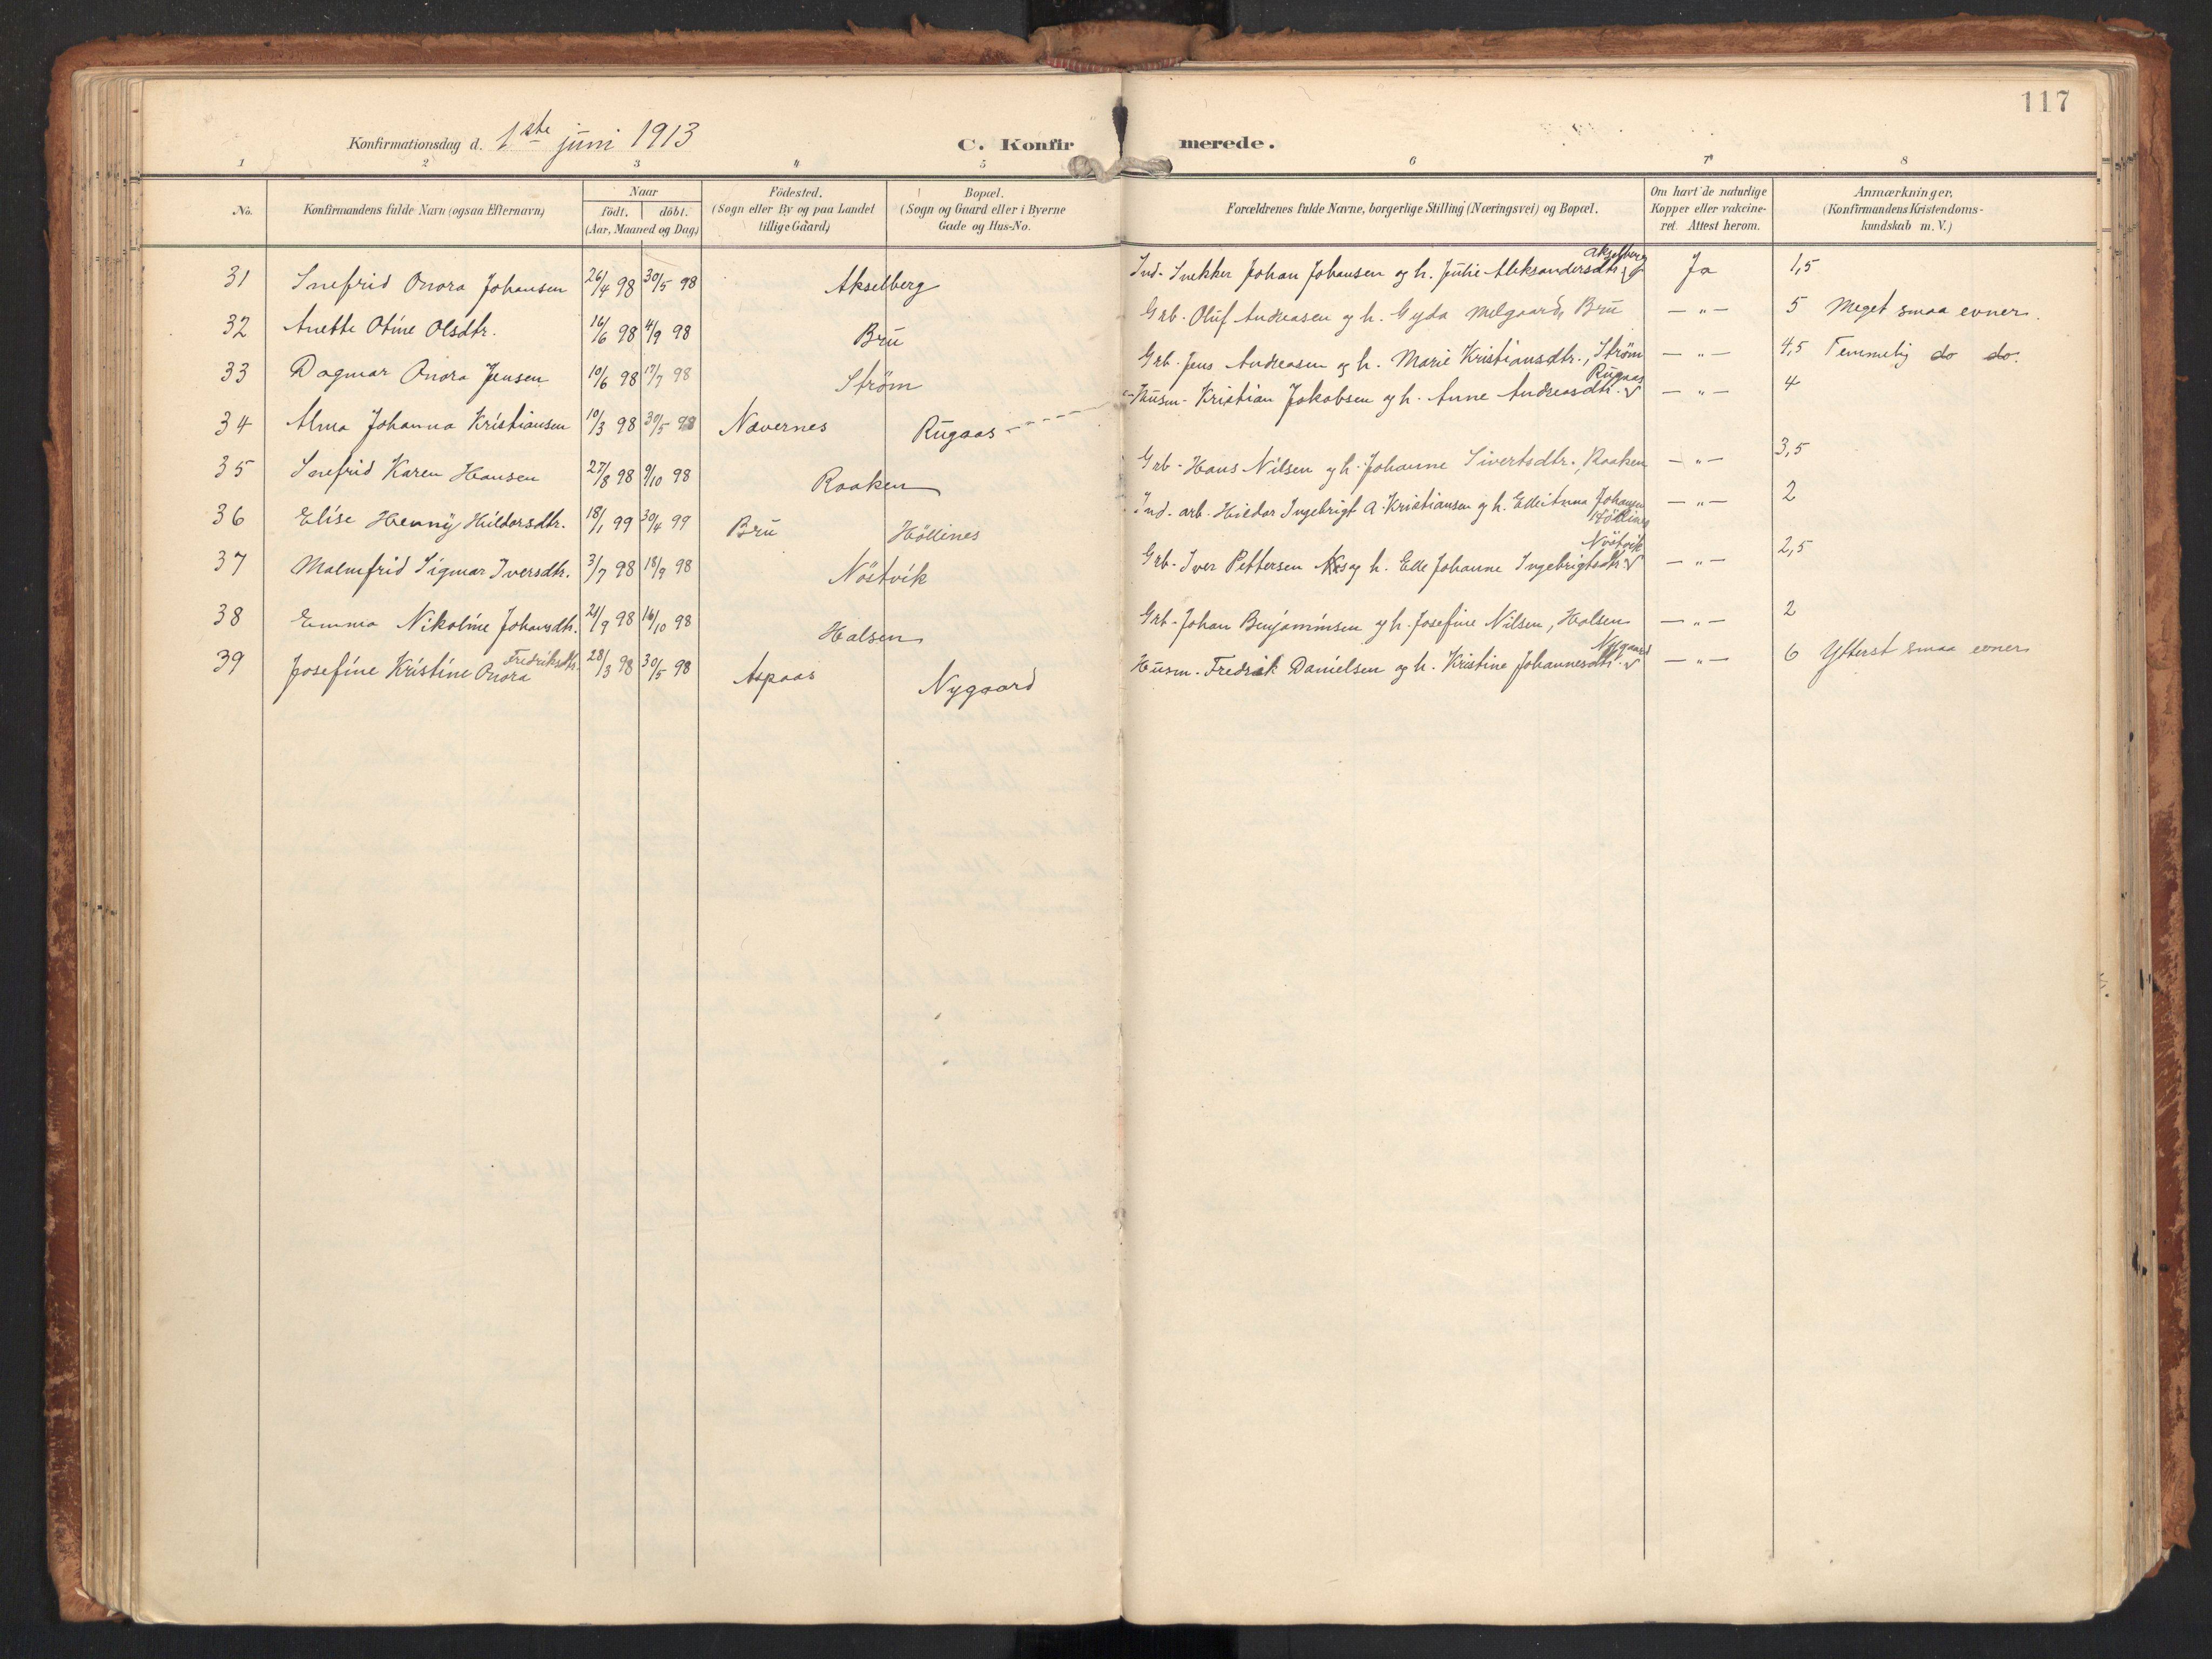 117
Konfirmationsdag d. 1ste juni 1913
C. Konfirmerede.
1 2 3 4 5 6 7 8
No. Konfirmandens fulde Navn (ogsaa Efternavn) Naar födt. döbt. (Aar, Maaned og Dag) Födested. (Sogn eller By og paa Landet tillige Gaard) Bopæl. (Sogn og Gaard eller i Byerne Gade og Hus-No. Forældrenes fulde Navne, borgerlige Stilling (Næringsvei) og Bopæl. Om havt de naturlige Kopper eller vakcineret. Attest herom. Anmærkninger. (Konfirmandens Kristendomskundskab m. V.)
31 Snefrid Onora Johansen 26/4 98 30/5 98 Akselberg Ind. Snekker Johan Johansen og h. Julie Aleksandersdtr. Akselberg Ja 1,5
32 Anette Otine Olsdtr. 16/6 98 4/9 98 Bru Grb. Oluf Andreasen og h. Gyda Melgaard, Bru — " — 5 Meget smaa evner.
33 Dagmar Onora Jensen 10/6 98 17/7 98 Ström Grb. Jens Andreasen og h. Marie Kristiansdtr., Ström — " — 4,5 Temmelig do do.
34 Alma Johanna Kristiansen 10/3 98 30/5 98 Nævernes Rugaas Husm. Kristian Jakobsen og h. Anne Andreasdtr. Rugaas — " — 4
35 Snefrid Karen Hansen 27/8 98 9/10 98 Raaken Grb. Hans Nilsen og h. Johanne Sivertsdtr., Raaken — " — 3,5
36 Elise Henny Hildorsdtr. 18/1 99 30/4 99 Bru Höllines Ind. arb. Hildor Ingebrigt A. Kristiansen og h. Johansen Höllines — " — 2
37 Malmfrid Sigmar Iversdtr. 3/7 98 18/9 98 Nöstvik Grb. Iver Pettersen og h. Elle Johanne Ingebrigtsdtr. Nöstvik — " — 2,5
38 Emma Nikoline Johansdtr. 21/9 98 16/10 98 Halsen Grb. Johan Benjaminsen og h. Josefine Nilsen, Halsen — " — 2
39 Josefine Kristine Onora Fredriksdtr. 28/3 98 30/5 98 Aspaas Nygaard Husm. Fredrik Danielsen og h. Kristine Johannesdtr. Nygaard — " — 6 Ytterst smaa evner